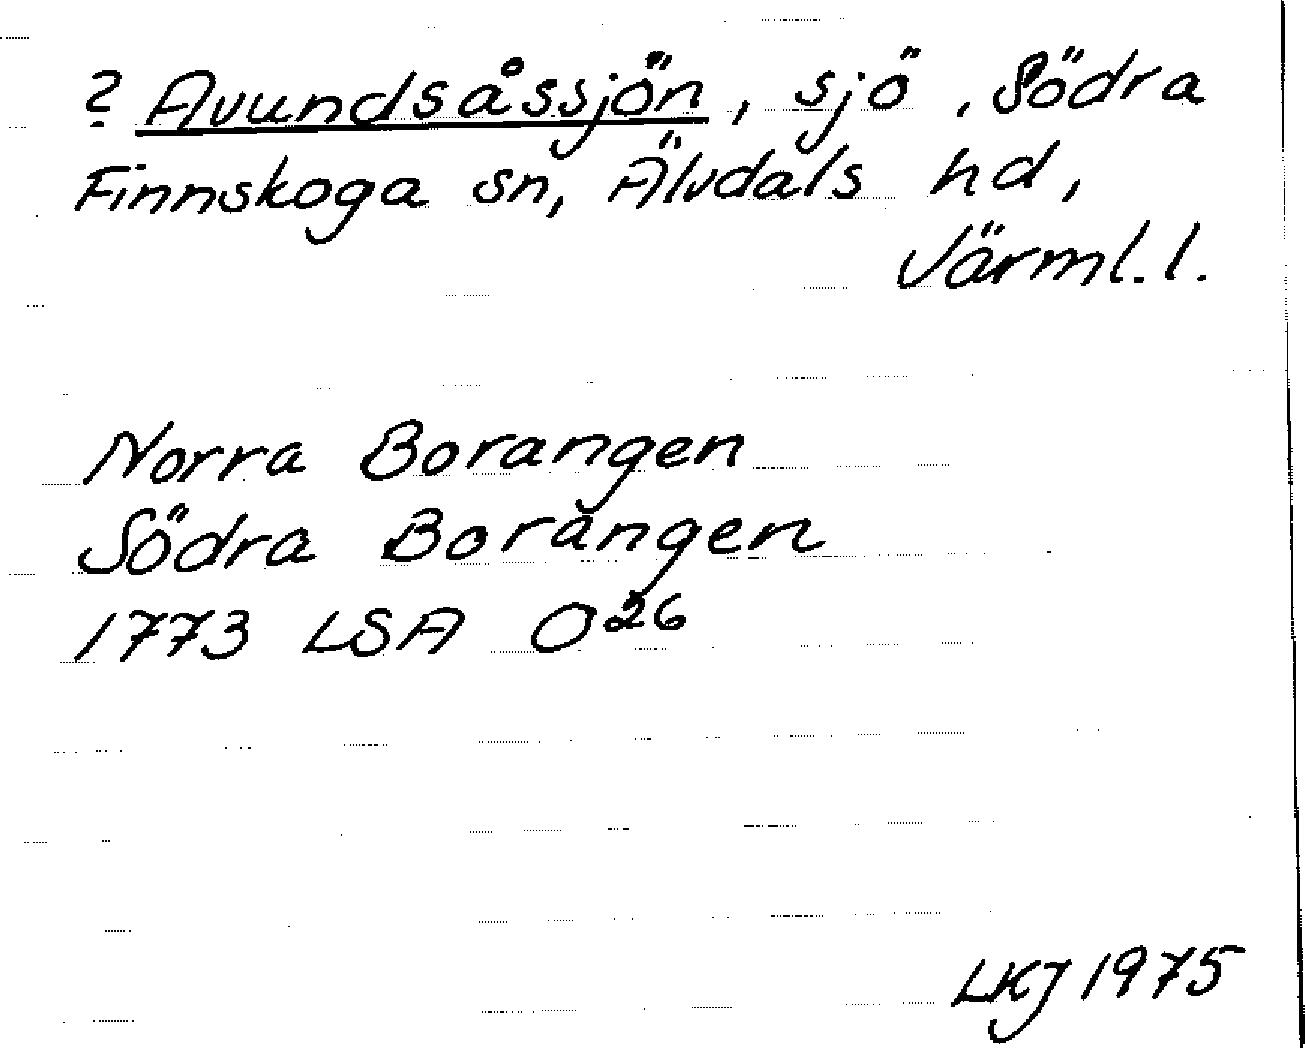 ? Avundsåssjön, sjö, Södra
Finnskoga sn, Älvdals hd,
Värml. l.
Norra Borangen
Södra Borangen
1773 LSA O26
LKJ 1975